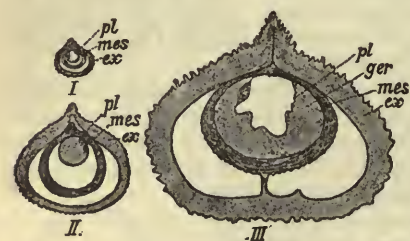 pl
mes
ex
I
pl
mes
ex
II.
pl
ger
mes
ex
III